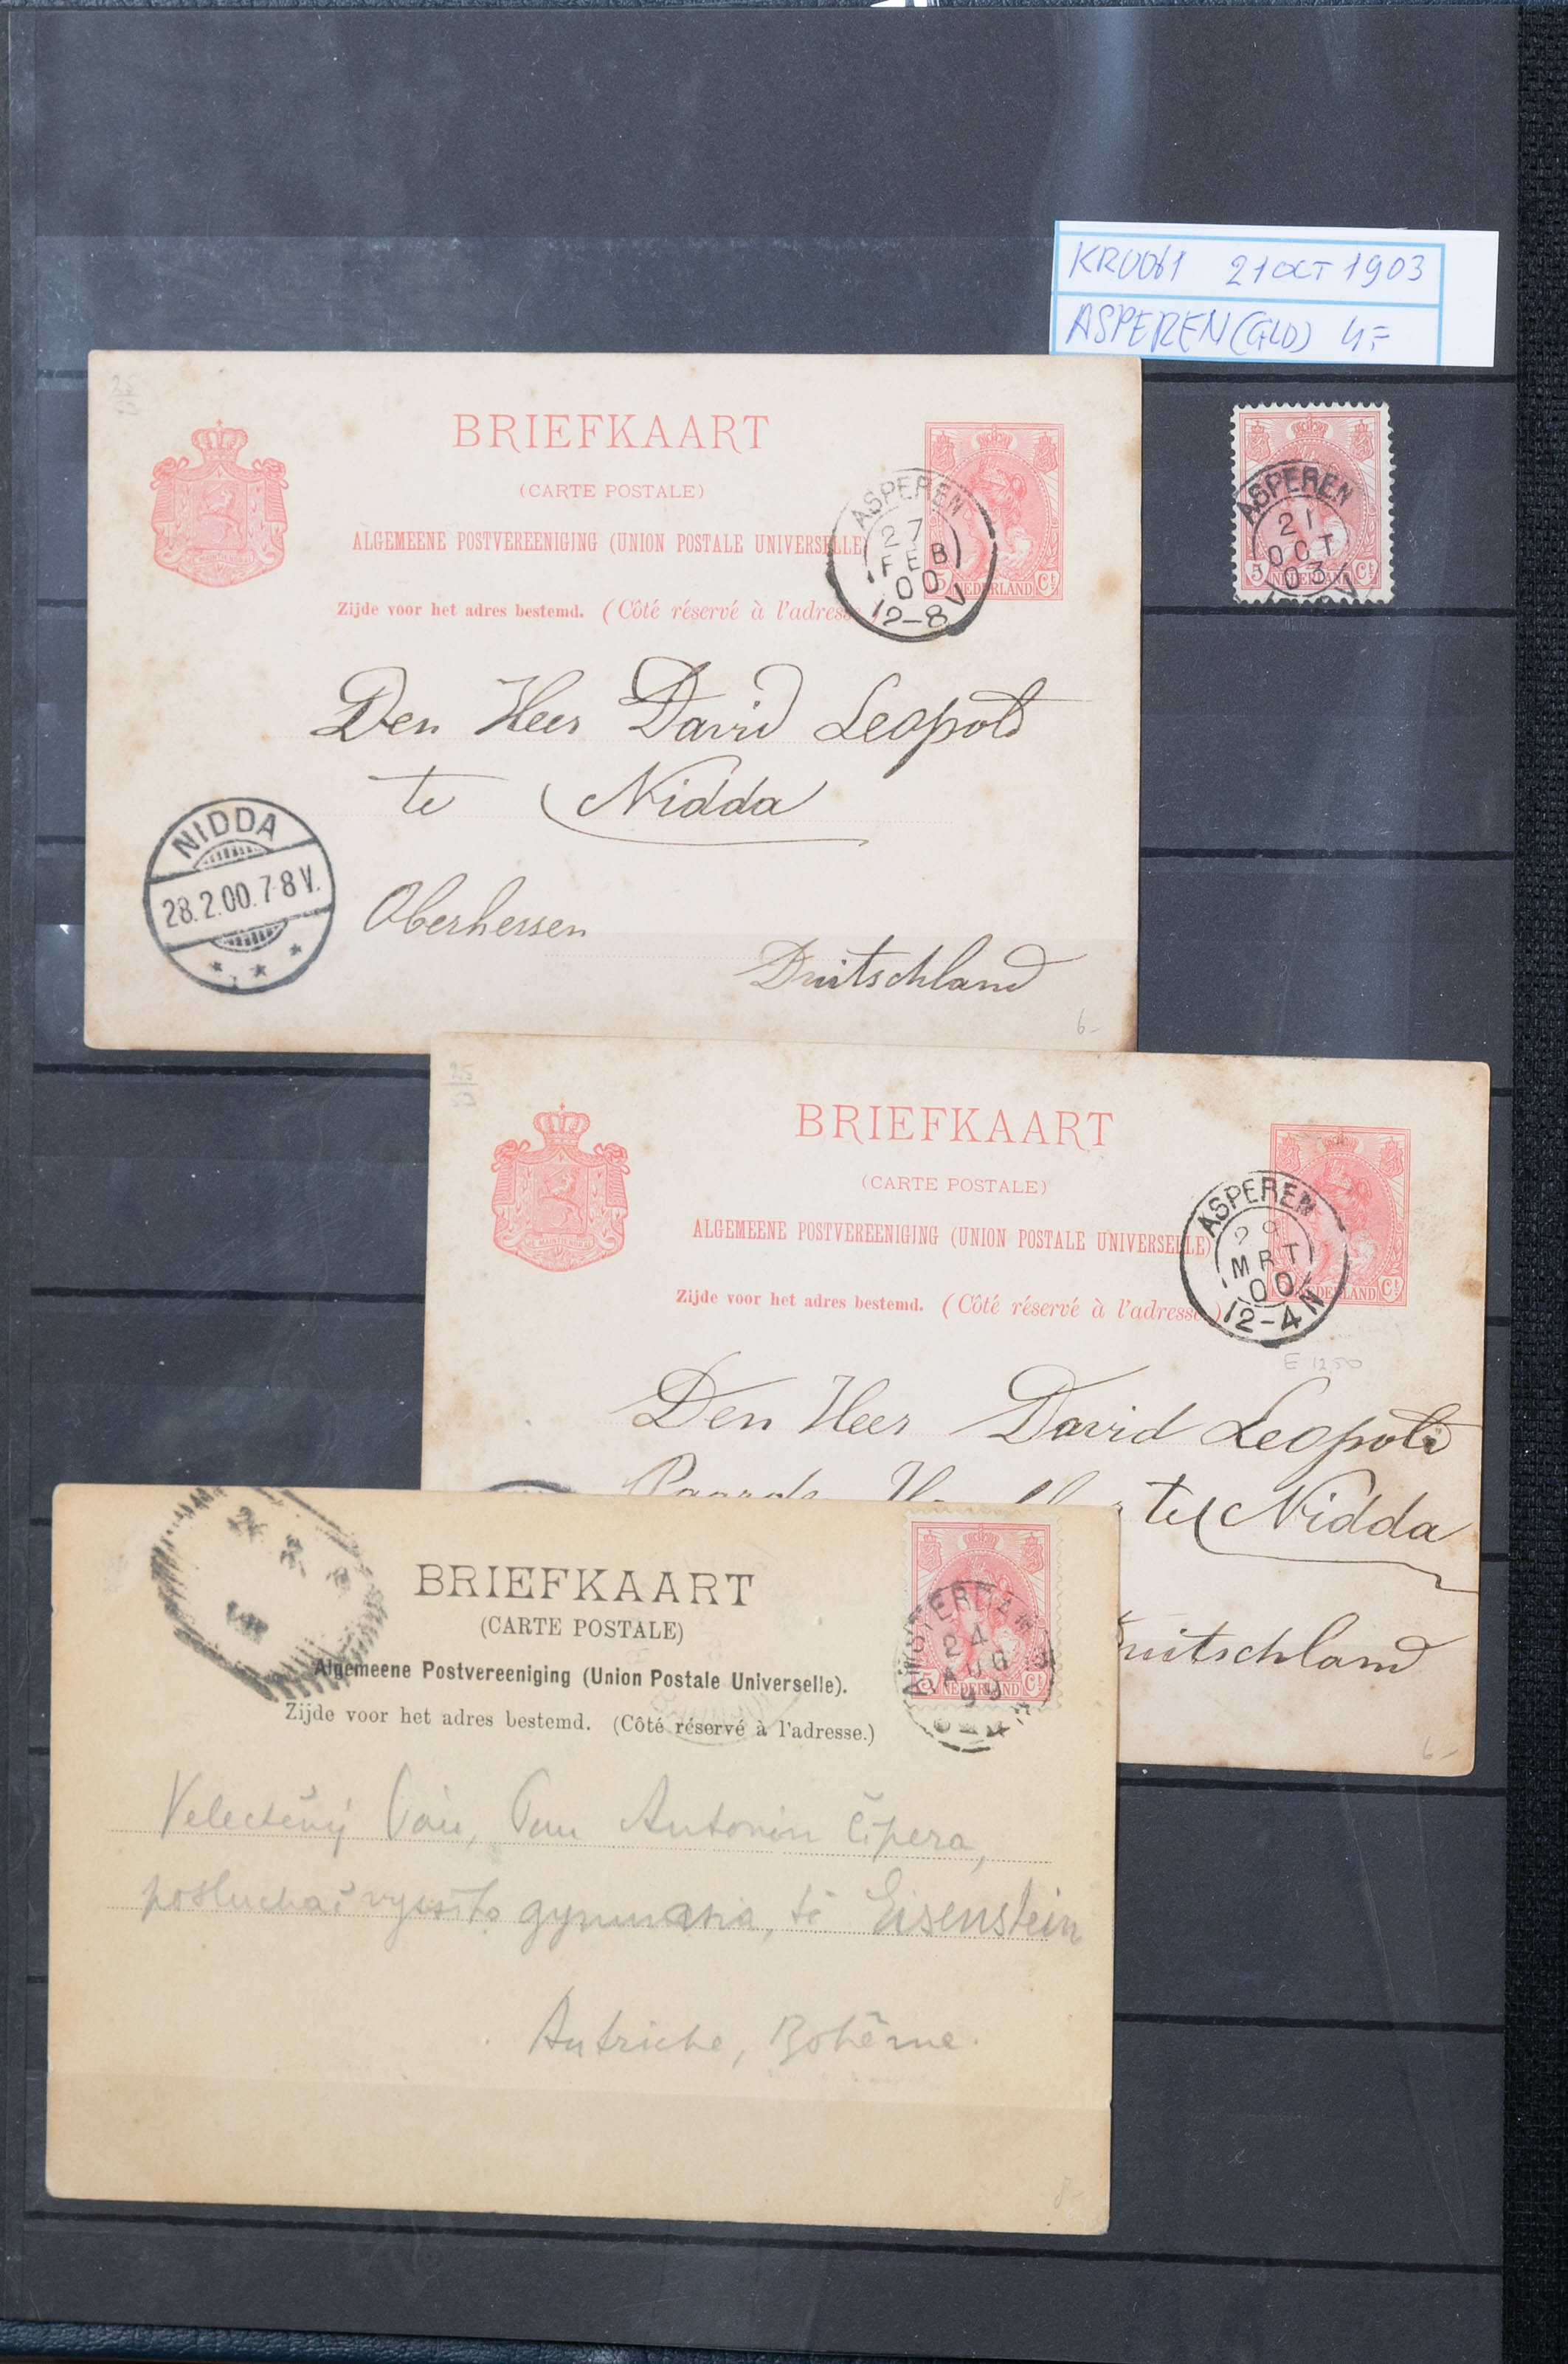 KR0061 21 OCT 1903
ASPEREN (GLD) 4,=
ASPEREN
21
OCT
03
5 NEDERLAND Ct
25
BRIEFKAART
(CARTE POSTALE)
ALGEMEENE POSTVEREENIGING (UNION POSTALE UNIVERSELLE
Zijde voor het adres bestemd. (Côté réservé à l'adresse
ASPEREN
27
FEB
00
12-8 V
5 NEDERLAND Ct
Den Heer David Leopold
te Nidda
NIDDA
28.2.00.7-8V.
Oberhessen
Duitschland
6-
25
BRIEFKAART
(CARTE POSTALE)
ALGEMEENE POSTVEREENIGING (UNION POSTALE UNIVERSELLE)
Zijde voor het adres bestemd. (Côté réservé à l'adresse.)
ASPEREN
29
MRT
00
12-4 N
NEDERLAND Ct
E 12,50
Den Heer David Leopold
te Nidda
Duitschland
6-
BRIEFKAART
(CARTE POSTALE)
Algemeene Postvereeniging (Union Postale Universelle).
Zijde voor het adres bestemd. (Côté réservé à l'adresse.)
AMSTERDAM
24
AUG
99
5 NEDERLAND Ct
Velectěný Pán, Pan Antonín Čipera,
posluchač vyššího gymnasia, té Eisenstein
Autriche, Bohême.
8-